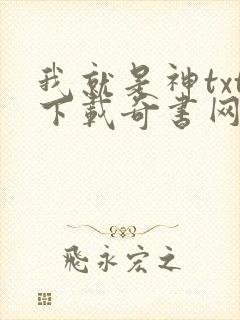 我就是神txt
下载奇书网
飛永宏之